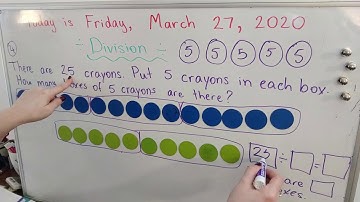 Today is Friday, March 27, 2020
÷ Division ÷ 5 5 5 5 5
There are 25 crayons. Put 5 crayons in each box.
How many boxes of 5 crayons are there?
25 ÷ =
are
boxes.